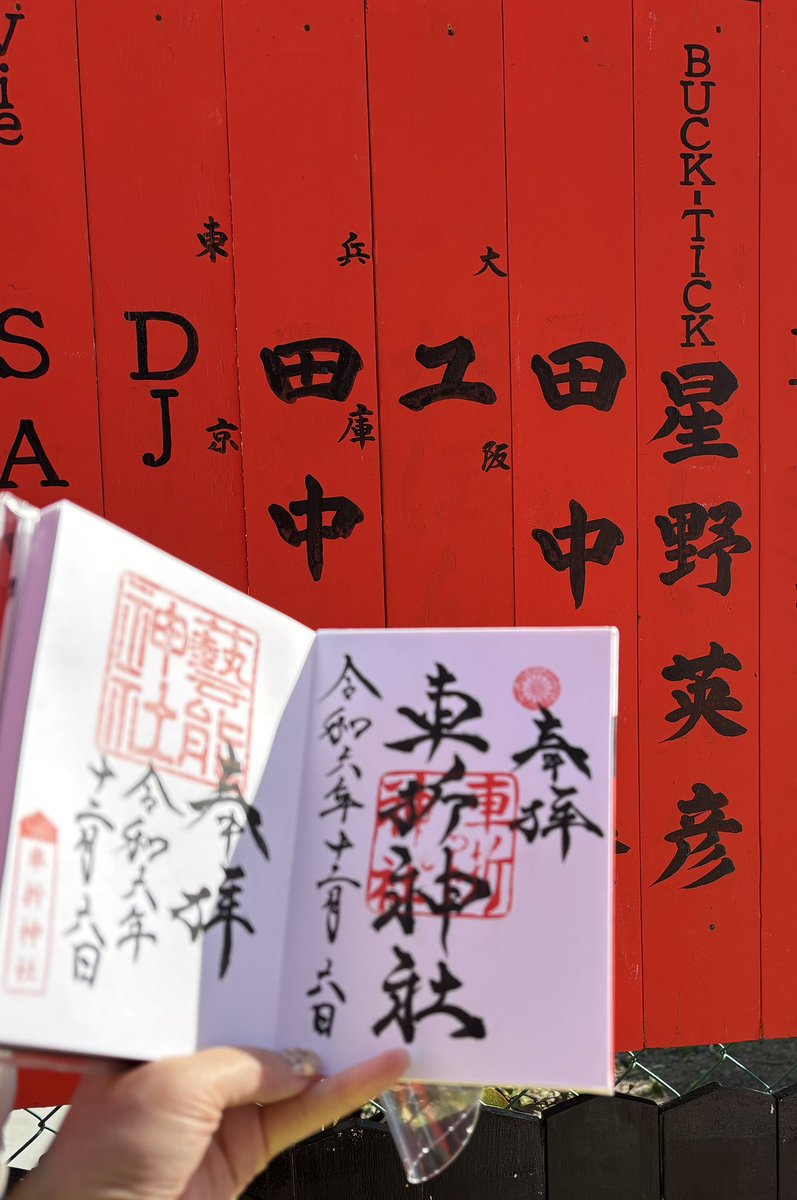 BUCK-TICK
星野英彦
田中
大阪
ユ
兵庫
田中
東京
DJ
vie
SA
奉拝
車折神社
車折神社
令和六年十二月六日
藝能神社
奉拝
令和六年
十二月六日
車折神社